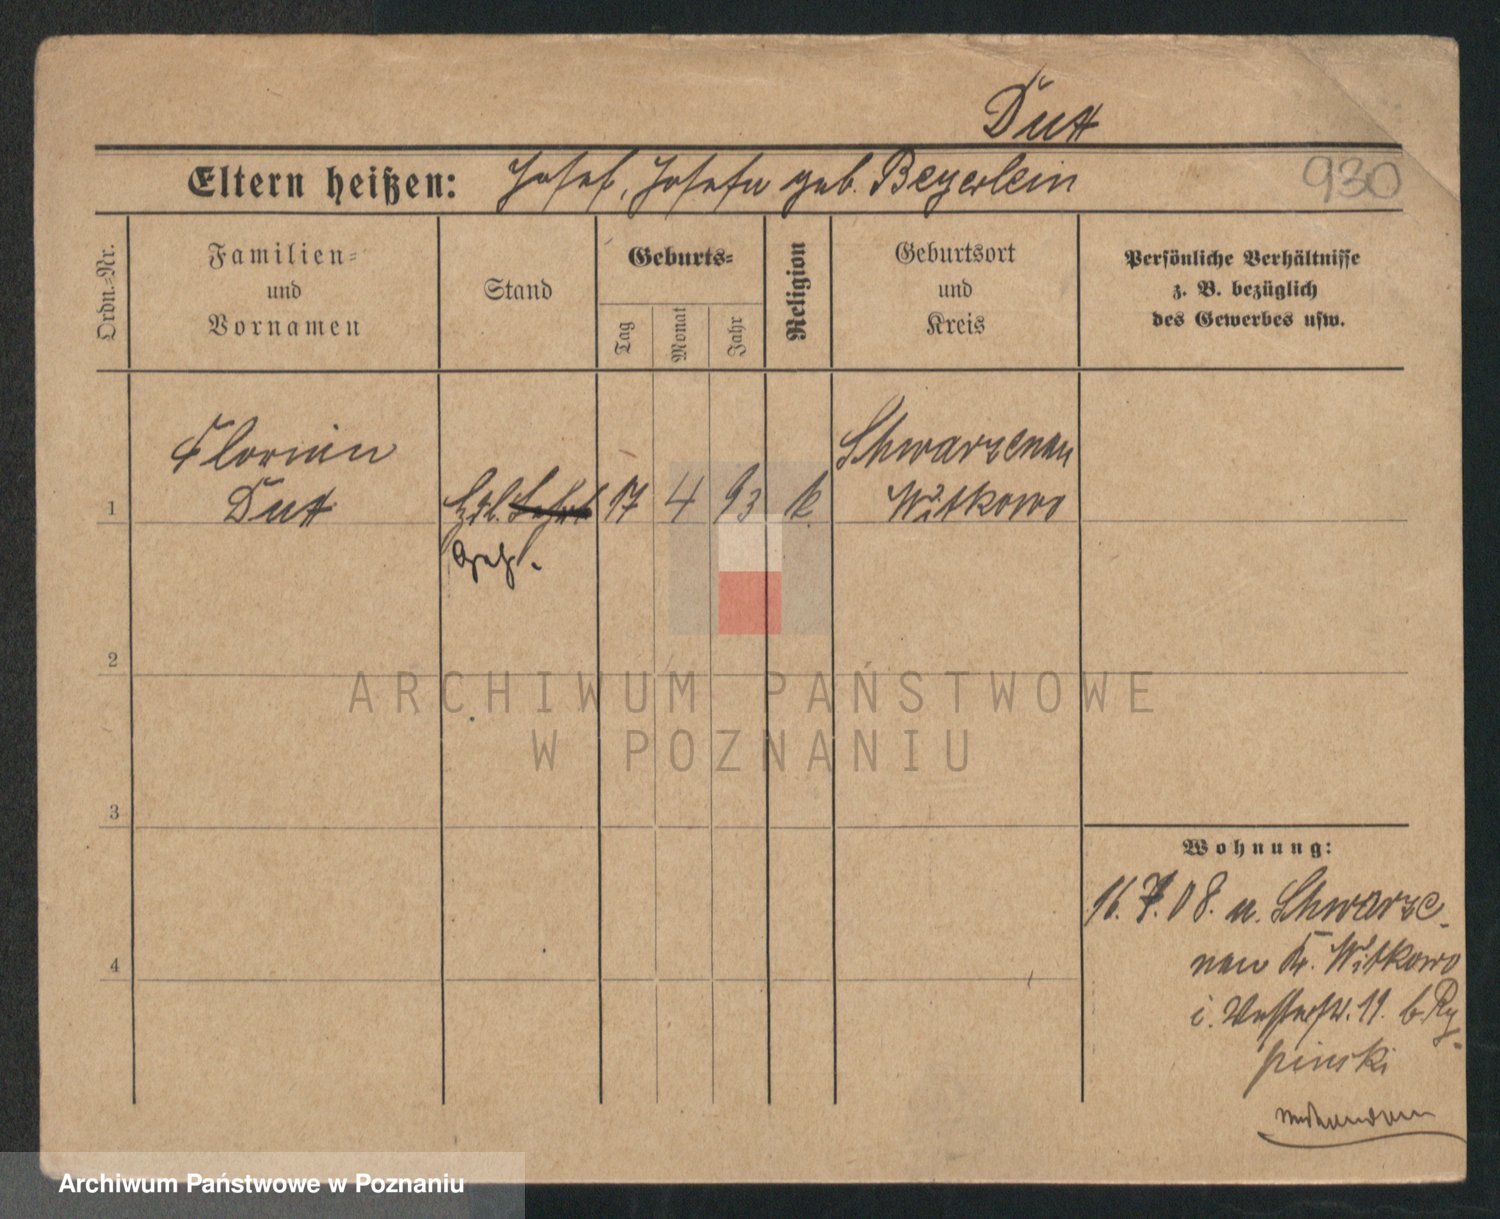 Dutt
Eltern heißen: Josef, Josefa geb. Beyerlein
930
Ordn.-Nr.
Familien-
und
Vornamen
Stand
Geburts-
Tag
Monat
Jahr
Religion
Geburtsort
und
Kreis
Persönliche Verhältnisse
z. B. bezüglich
des Gewerbes usw.
Florian
Dutt
1
Hdl. Lehrl
Geh.
17 4 93 k
Schwarzenau
Witkowo
2
3
4
Wohnung:
16. 7. 08. u. Schwarze-
nau Kr. Witkowo
i. 11. b. Ry-
pinski
ARCHIWUM PAŃSTWOWE
W POZNANIU
Archiwum Państwowe w Poznaniu